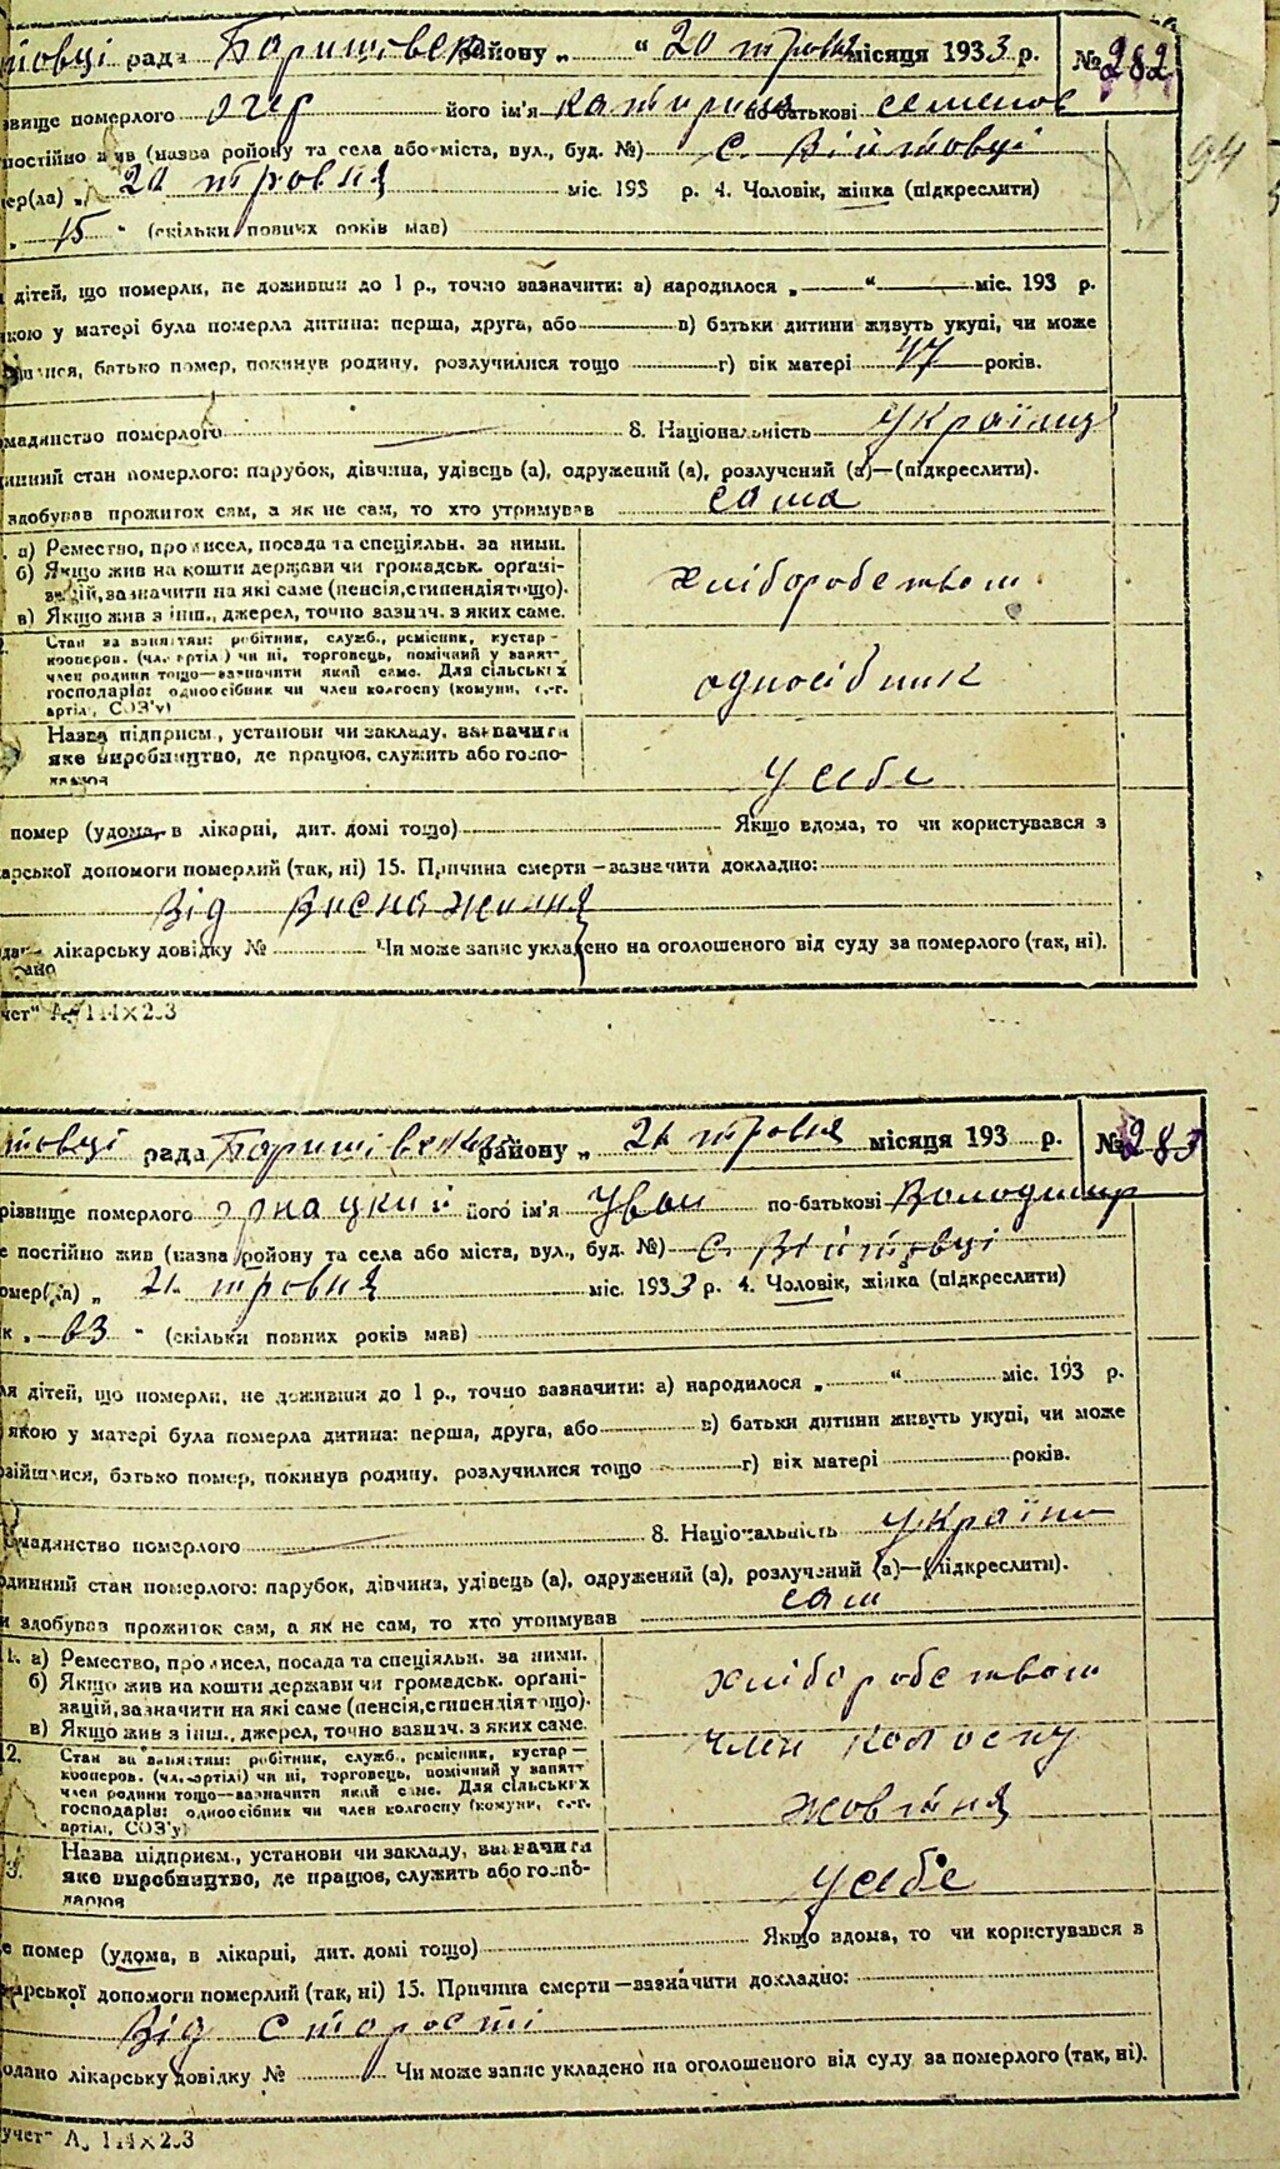 рада Баришовск району „ “ 20 травня місяця 1933 р. № 282
94
звище померлого його ім'я Катирина по-батькові Семенов
постійно жив (назва ройону та села або міста, вул., буд. №) с. Війтовці
мер(ла) „ 20 травня міс. 193 р. 4. Чоловік, жінка (підкреслити)
„ 15 “ (скільки повних років мав)
дітей, що померли, не доживши до 1 р., точно зазначити: а) народилося „ “ міс. 193 р.
якою у матері була померла дитина: перша, друга, або в) батьки дитини живуть укупі, чи може
батько помер, покинув родину, розлучилися тощо г) вік матері 47 років.
мадянство померлого 8. Національність Україниц
динний стан померлого: парубок, дівчина, удівець (а), одружений (а), розлучений (а)—(підкреслити).
здобував прожиток сам, а як не сам, то хто утримував сама
а) Ремество, промисел, посада та спеціяльн. за ними.
б) Якщо жив на кошти держави чи громадськ. органі-
зацій, зазначити на які саме (пенсія, стипендія тощо).
в) Якщо жив з інш., джерел, точно зазнач. з яких саме.
хліборобством
Стан за заняттям: робітник, служб., ремісник, кустар—
кооперов. (чл. артілі) чи ні, торговець, помічний у занят-
член родини тощо—зазначити який саме. Для сільських
господарів: одноосібник чи член колгоспу (комуни, с.-г.
артілі, СОЗ'у)
односібник
Назва підприєм., установи чи закладу, зазначити
яке виробництво, де працюв, служить або госпо-
дарюв
у себе
помер (удома, в лікарні, дит. домі тощо) Якщо вдома, то чи користувався з
карської допомоги померлий (так, ні) 15. Причина смерти—зазначити докладно:
Від виснаження
лікарську довідку № Чи може запис укладено на оголошеного від суду за померлого (так, ні).
чет“ 114×203
товці рада Баришівськ району „ 21 травня місяця 193 р. № 283
різвище померлого його ім'я Иван по-батькові Володимир
е постійно жив (назва ройону та села або міста, вул., буд. №) с. Війтовці
омер(ла) „ 21 травня міс. 1933 р. 4. Чоловік, жінка (підкреслити)
к „ 63 “ (скільки повних років мав)
ля дітей, що померли, не доживши до 1 р., точно зазначити: а) народилося „ “ міс. 193 р.
якою у матері була померла дитина: перша, друга, або в) батьки дитини живуть укупі, чи може
зійшлися, батько помер, покинув родину, розлучилися тощо г) вік матері років.
омадянство померлого 8. Національність Україн
одинний стан померлого: парубок, дівчина, удівець (а), одружений (а), розлучений (а)—(підкреслити).
и здобував прожиток сам, а як не сам, то хто утримував сам
1. а) Ремество, промисел, посада та спеціяльн. за ними.
б) Якщо жив на кошти держави чи громадськ. органі-
зацій, зазначити на які саме (пенсія, стипендія тощо).
в) Якщо жив з інш., джерел, точно зазнач. з яких саме.
хліборобством
2. Стан за заняттям: робітник, служб., ремісник, кустар—
кооперов. (чл. артілі) чи ні, торговець, помічний у занятт
член родини тощо—зазначити який саме. Для сільських
господарів: одноосібник чи член колгоспу (комуни, с.-г.
артілі, СОЗ'у)
член колгоспу
жовтня
3. Назва підприєм., установи чи закладу, зазначити
яке виробництво, де працюв, служить або госпо-
дарюв
у себе
е помер (удома, в лікарні, дит. домі тощо) Якщо вдома, то чи користувався з
карської допомоги померлий (так, ні) 15. Причина смерти—зазначити докладно:
Від старості
одано лікарську довідку № Чи може запис укладено на оголошеного від суду за померлого (так, ні).
учет“ 114×203